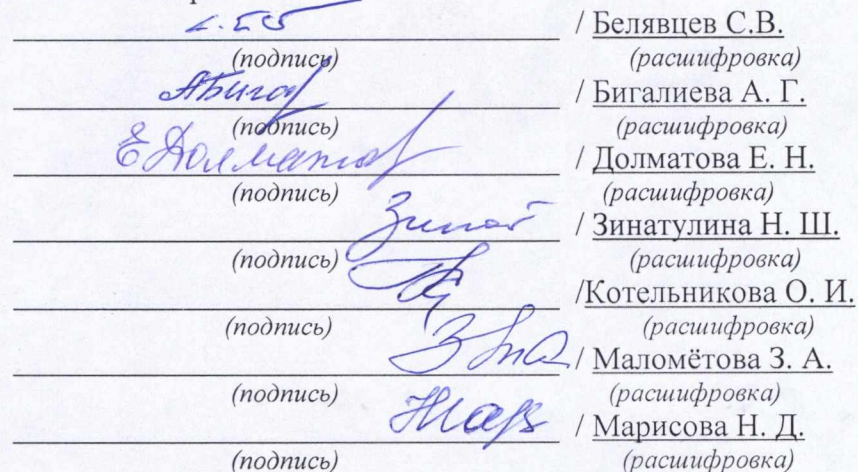 / Белявцев С.В.
(подпись) (расшифровка)
/ Бигалиева А. Г.
(подпись) (расшифровка)
Е Долматов / Долматова Е. Н.
(подпись) (расшифровка)
Зинат / Зинатулина Н. Ш.
(подпись) (расшифровка)
/Котельникова О. И.
(подпись) (расшифровка)
/ Маломётова З. А.
(подпись) (расшифровка)
/ Марисова Н. Д.
(подпись) (расшифровка)